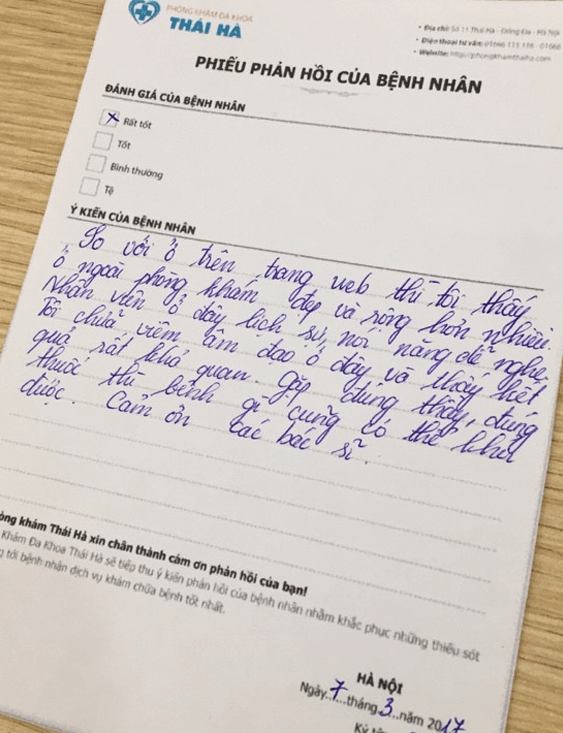 PHÒNG KHÁM ĐA KHOA
THÁI HÀ
• Địa chỉ: Số 11 Thái Hà - Đống Đa - Hà Nội
• Điện thoại tư vấn: 01666 115 116 - 01666
• Website: http://phongkhamthaiha.com
PHIẾU PHẢN HỒI CỦA BỆNH NHÂN
ĐÁNH GIÁ CỦA BỆNH NHÂN
x Rất tốt
Tốt
Bình thường
Tệ
Ý KIẾN CỦA BỆNH NHÂN
So với ở trên trang web thì tôi thấy
ở ngoài phòng khám đẹp và rộng hơn nhiều.
Nhân viên ở đây lịch sự, nói năng dễ nghe.
Tôi chữa viêm âm đạo ở đây và thấy kết
quả rất khả quan. Gặp đúng thầy, đúng
thuốc thì bệnh gì cũng có thể khỏi
được. Cảm ơn các bác sĩ.
òng khám Thái Hà xin chân thành cảm ơn phản hồi của bạn!
Khám Đa Khoa Thái Hà sẽ tiếp thu ý kiến phản hồi của bệnh nhân nhằm khắc phục những thiếu sót
g tới bệnh nhân dịch vụ khám chữa bệnh tốt nhất.
HÀ NỘI
Ngày..7...tháng.3...năm 2017